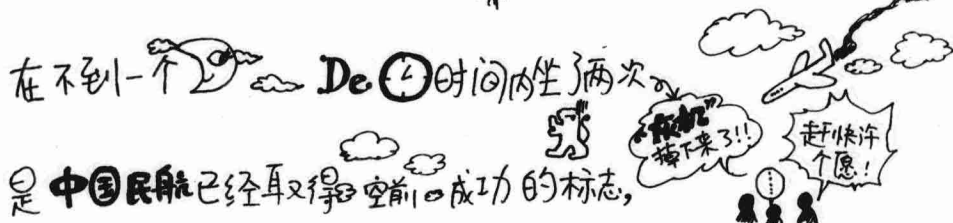 在不到一个
De
时间内坐了两次
"板机"
掉下来了!!
赶快许
个愿!
是中国民航已经取得空前成功的标志,